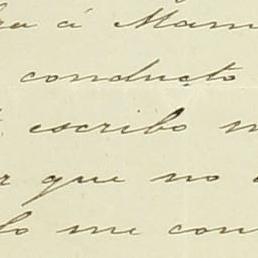 á Mam
conducto
escribo
r que no
lo me con